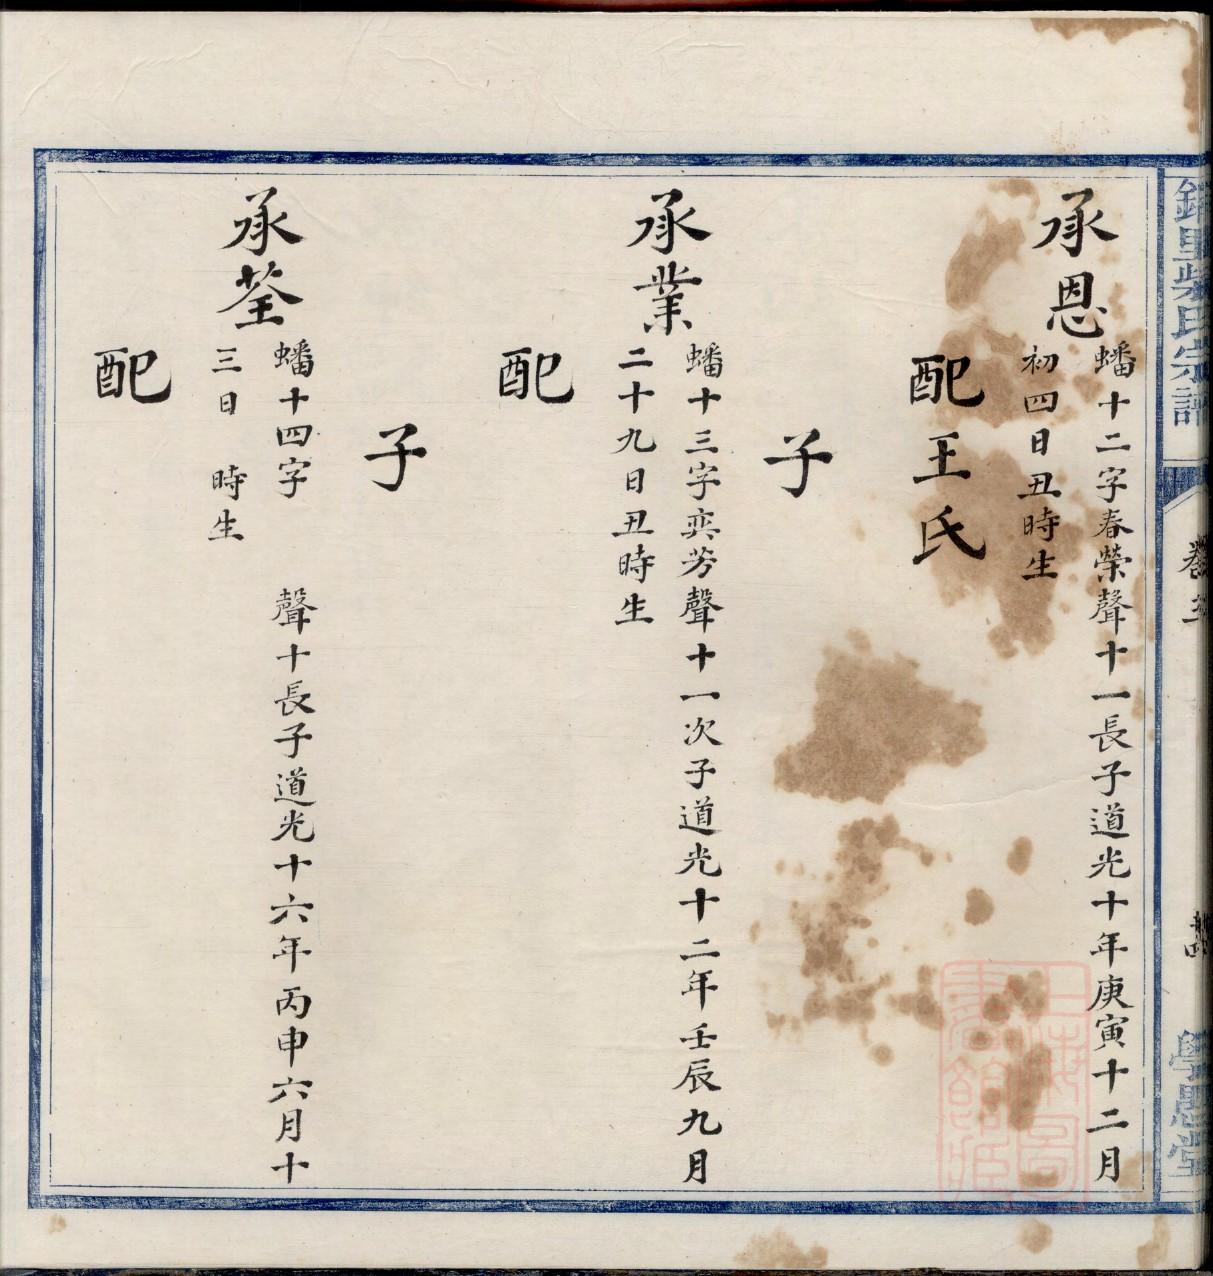 承恩
蟠十二字春榮聲十一長子道光十年庚寅十二月
初四日丑時生
配王氏
子
承業
蟠十三字奕芳聲十一次子道光十二年壬辰九月
二十九日丑時生
配
子
承荃
蟠十四字 聲十長子道光十六年丙申六月十
三日 時生
配
里柴氏宗譜
卷
學思堂